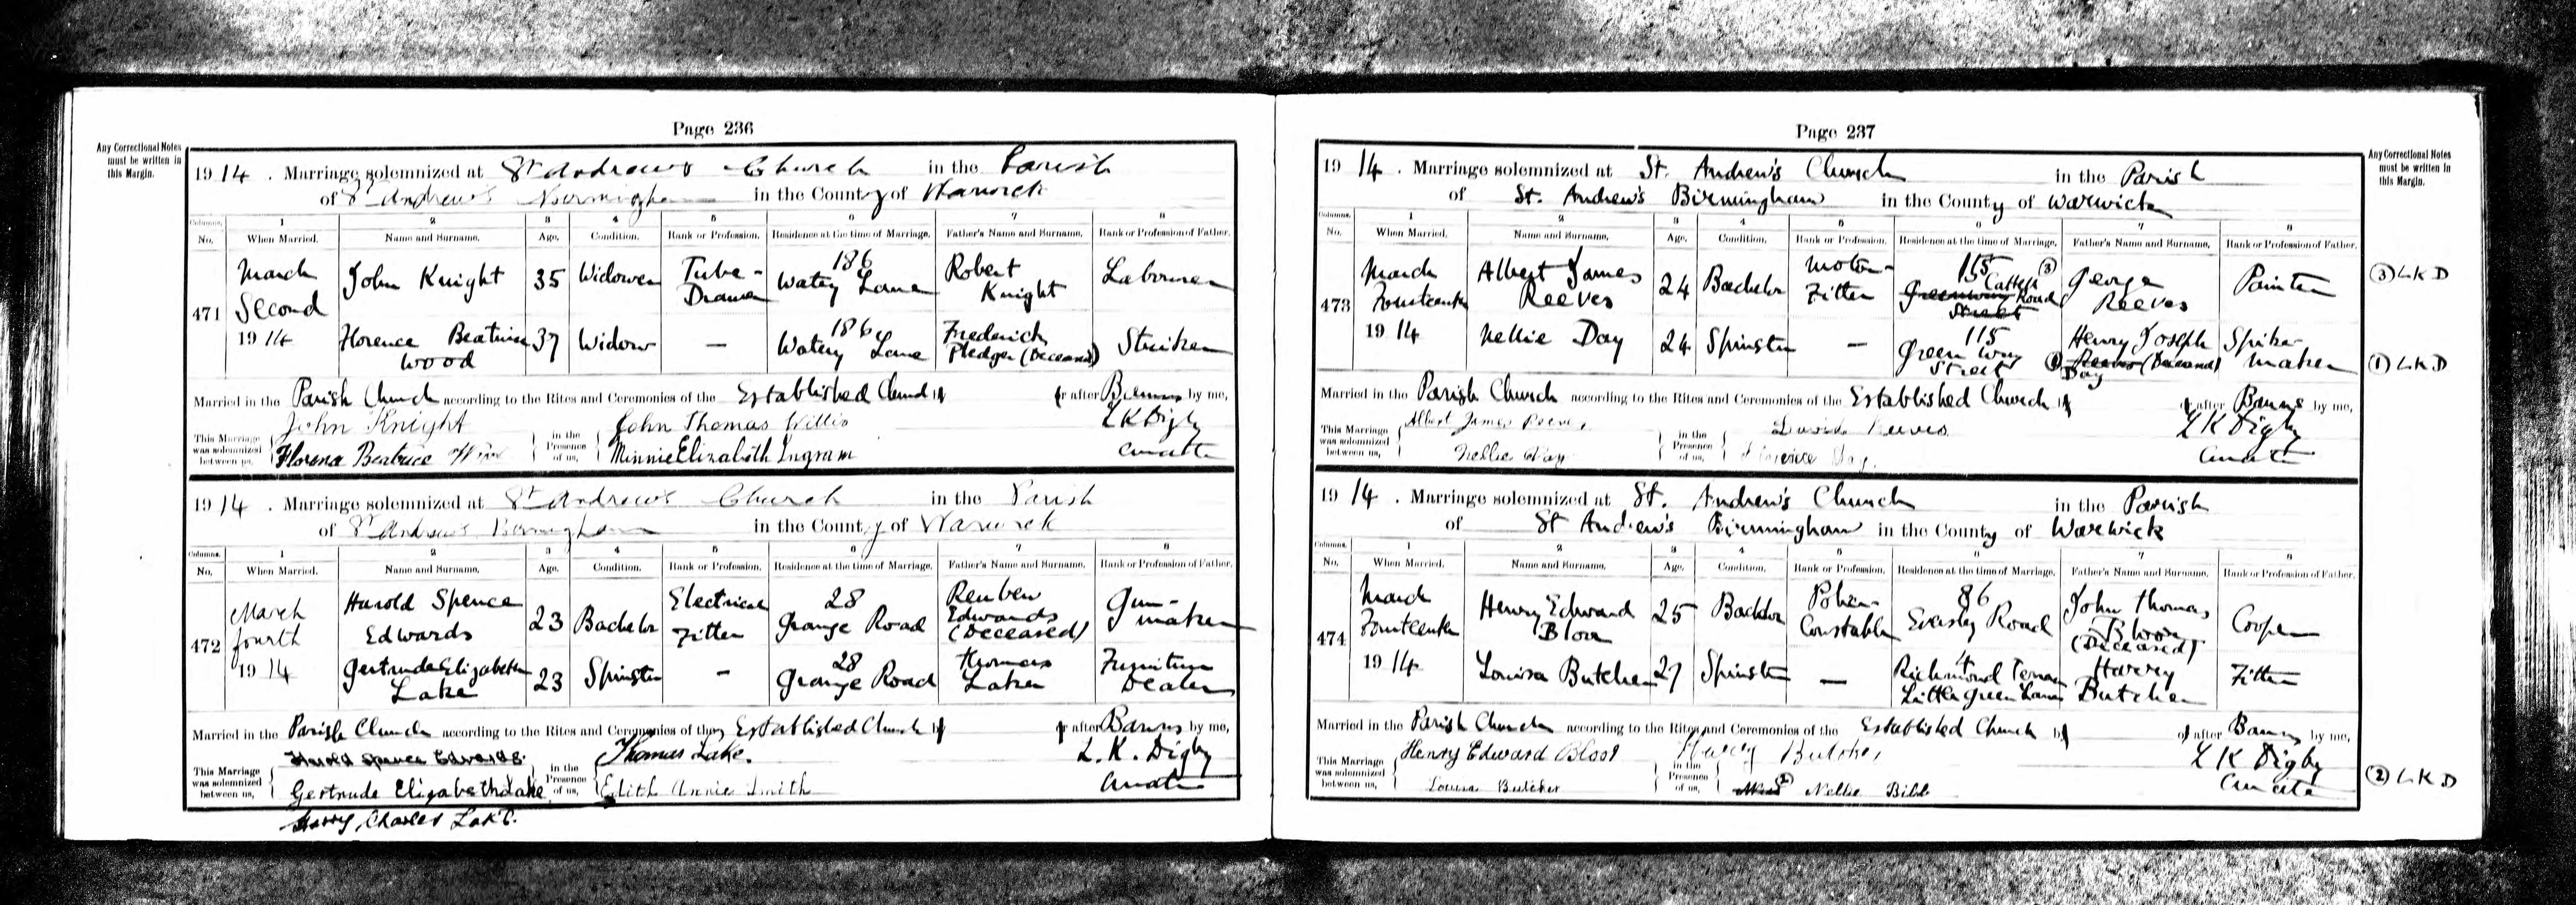 Page 236
Any Correctional Notes
must be written in
this Margin.
19 14 . Marriage solemnized at St Andrews Church in the Parish
of St Andrew's Birmingham in the County of Warwick
Columns. 1 2 3 4 5 6 7 8
No. When Married. Name and Surname. Age. Condition. Rank or Profession. Residence at the time of Marriage. Father's Name and Surname. Rank or Profession of Father.
471 March Second 1914 John Knight 35 Widower Tube-Drawer 186 Watery Lane Robert Knight Labourer
Florence Beatrice Wood 37 Widow — 186 Watery Lane Frederick Pledger (Deceased) Striker
Married in the Parish Church according to the Rites and Ceremonies of the Established Church by or after Banns by me,
This Marriage was solemnized between us, John Knight in the Presence of us, John Thomas Willis L K Digby
Florence Beatrice Wood Minnie Elizabeth Ingram Curate
19 14 . Marriage solemnized at St Andrew's Church in the Parish
of St Andrew's Birmingham in the County of Warwick
Columns. 1 2 3 4 5 6 7 8
No. When Married. Name and Surname. Age. Condition. Rank or Profession. Residence at the time of Marriage. Father's Name and Surname. Rank or Profession of Father.
472 March fourth 1914 Harold Spence Edwards 23 Bachelor Electrical Fitter 28 Grange Road Reuben Edwards (Deceased) Gun-maker
Gertrude Elizabeth Lake 23 Spinster — 28 Grange Road Thomas Lake Furniture Dealer
Married in the Parish Church according to the Rites and Ceremonies of the Established Church by or after Banns by me,
This Marriage was solemnized between us, Harold Spence Edwards. in the Presence of us, Thomas Lake. L. K. Digby
Gertrude Elizabeth Lake Edith Annie Smith Curate
Harry Charles Lake.
Page 237
Any Correctional Notes
must be written in
this Margin.
19 14 . Marriage solemnized at St. Andrew's Church in the Parish
of St. Andrew's Birmingham in the County of Warwick
Columns. 1 2 3 4 5 6 7 8
No. When Married. Name and Surname. Age. Condition. Rank or Profession. Residence at the time of Marriage. Father's Name and Surname. Rank or Profession of Father.
473 March Fourteenth 1914 Albert James Reeves 24 Bachelor Motor-Fitter 155 Cattell ③ Greenway Road Street George Reeves Painter ③ L K D
Nellie Day 24 Spinster — 115 Green Way Street Henry Joseph ① Reeves (Deceased) Day Spike-maker ① L K D
Married in the Parish Church according to the Rites and Ceremonies of the Established Church by or after Banns by me,
This Marriage was solemnized between us, Albert James Reeves, in the Presence of us, David Reeves L K Digby
Nellie Day Florence Day. Curate
19 14 . Marriage solemnized at St. Andrew's Church in the Parish
of St Andrew's Birmingham in the County of Warwick
Columns. 1 2 3 4 5 6 7 8
No. When Married. Name and Surname. Age. Condition. Rank or Profession. Residence at the time of Marriage. Father's Name and Surname. Rank or Profession of Father.
474 March Fourteenth 1914 Henry Edward Bloor 25 Bachelor Police-Constable 86 Eversley Road John Thomas Bloor (Deceased) Cooper
Louisa Butcher 27 Spinster — 4 Richmond Terrace Little Green Lane Harry Butcher Fitter
Married in the Parish Church according to the Rites and Ceremonies of the Established Church by or after Banns by me,
This Marriage was solemnized between us, Henry Edward Bloor in the Presence of us, Harry Butcher L K Digby
Louisa Butcher ② Nellie Bibb Curate ② L K D